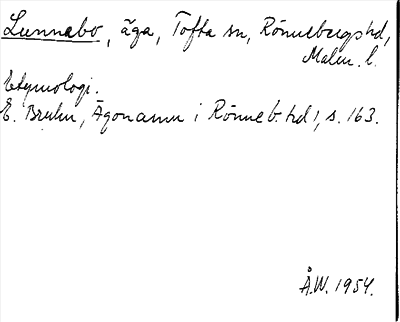 Lunnabo, äga, Tofta sn, Rönnebergs hd,
Malm. l.
Etymologi.
E. Bruhn, Ägonamn i Rönneb. hd 1, s. 163.
Å.W. 1954.